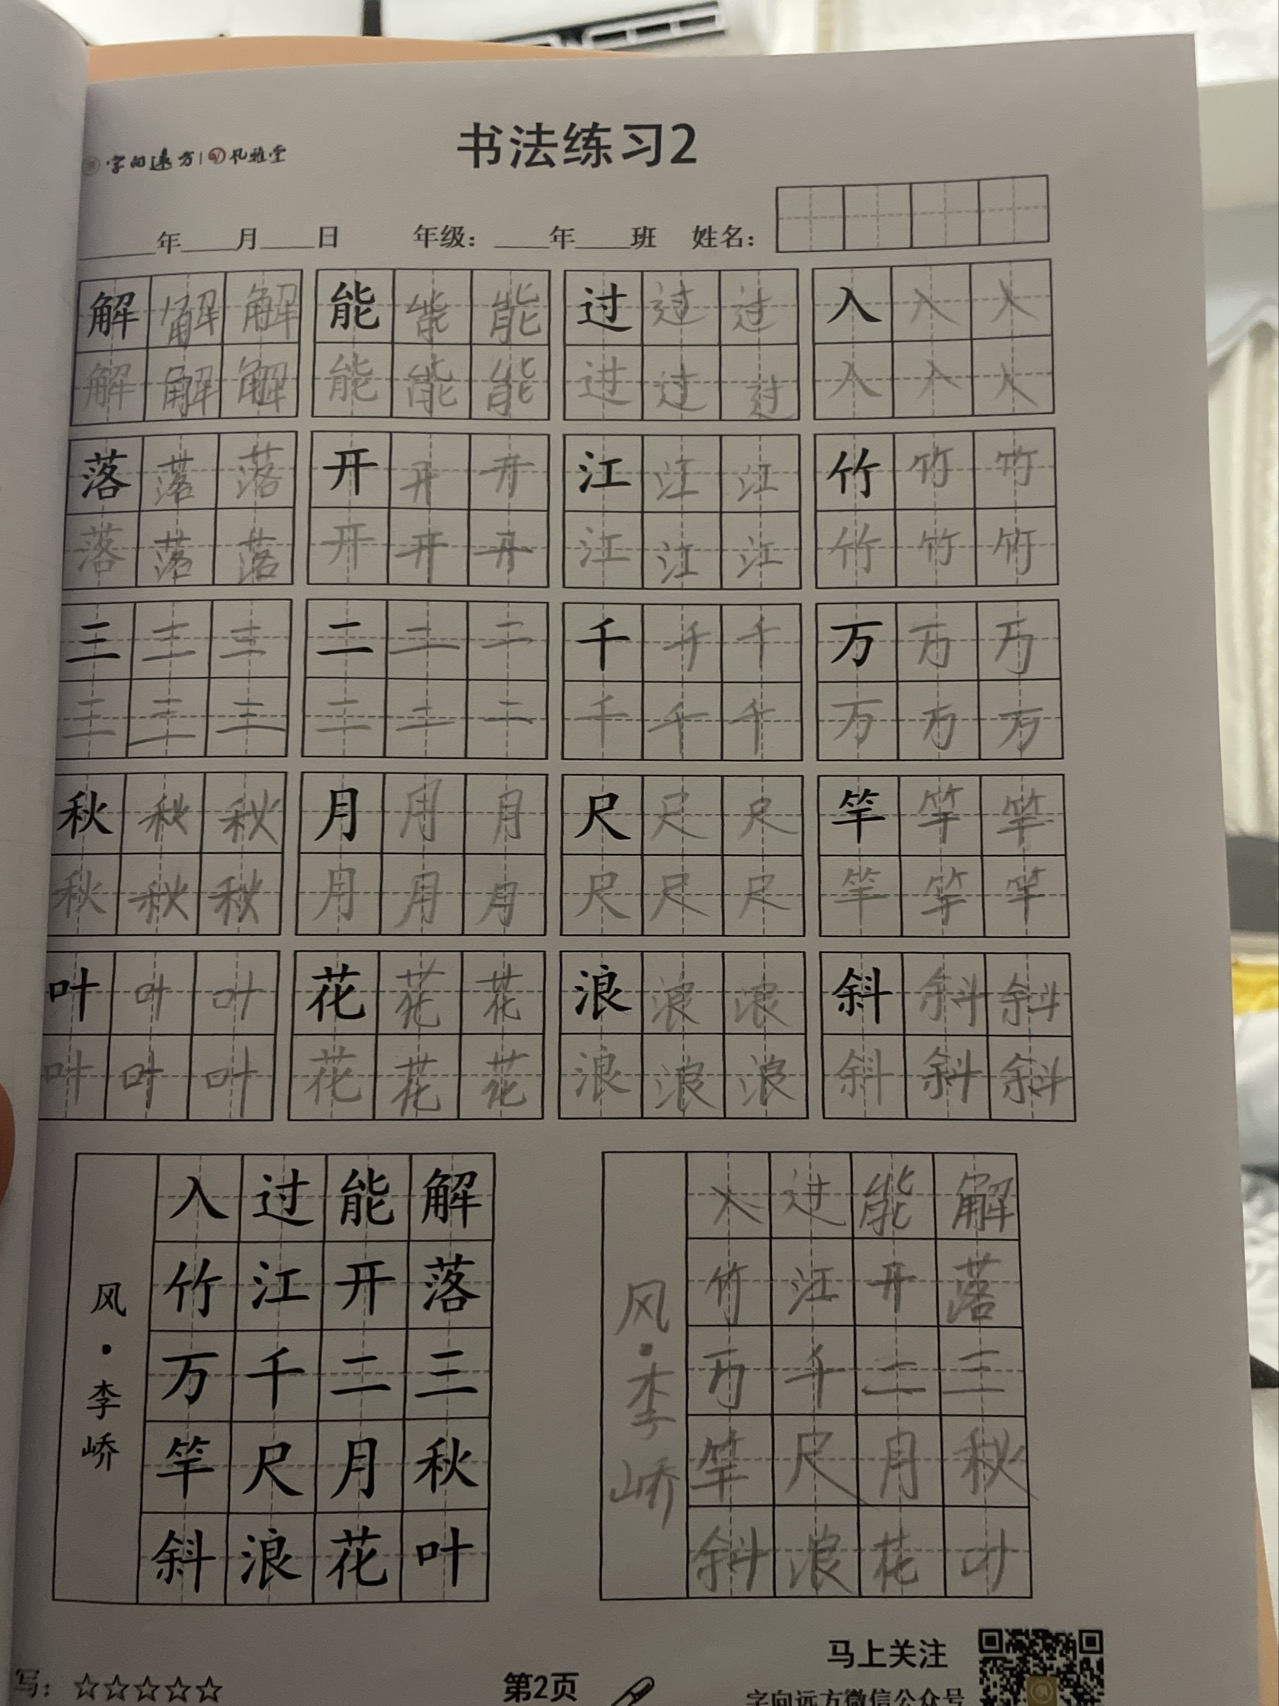 字向远方 | 风雅堂
书法练习2
年 月 日 年级： 年 班 姓名：
解解解 能能能 过过过 入入入
解解解 能能能 过过过 入入入
落落落 开开开 江江江 竹竹竹
落落落 开开开 江江江 竹竹竹
三三三 二二二 千千千 万万万
三三三 二二二 千千千 万万万
秋秋秋 月月月 尺尺尺 竿竿竿
秋秋秋 月月月 尺尺尺 竿竿竿
叶叶叶 花花花 浪浪浪 斜斜斜
叶叶叶 花花花 浪浪浪 斜斜斜
解落三秋叶
能开二月花
过江千尺浪
入竹万竿斜
风·李峤
解落三秋叶
能开二月花
过江千尺浪
入竹万竿斜
风·李峤
写：☆☆☆☆☆
第2页
马上关注
字向远方微信公众号